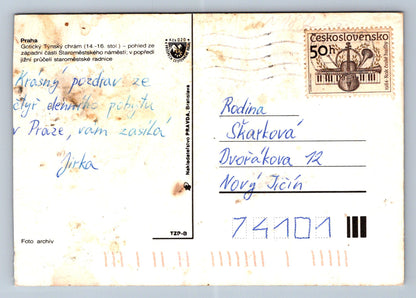 Praha
Gotický Týnský chrám (14.-16. stol.) - pohled ze
západní části Staroměstského náměstí, v popředí
jižní průčelí staroměstské radnice
Krásný pozdrav ze
čtyř denního pobytu
v Praze, vám zasílá
Jirka
Foto archív
Nakladatelství PRAVDA, Bratislava
TZP-B
Kčs 0,20
Československo
50 h
1984 Rok české hudby
Rodina
Škarková
Dvořákova 12
Nový Jičín
74101